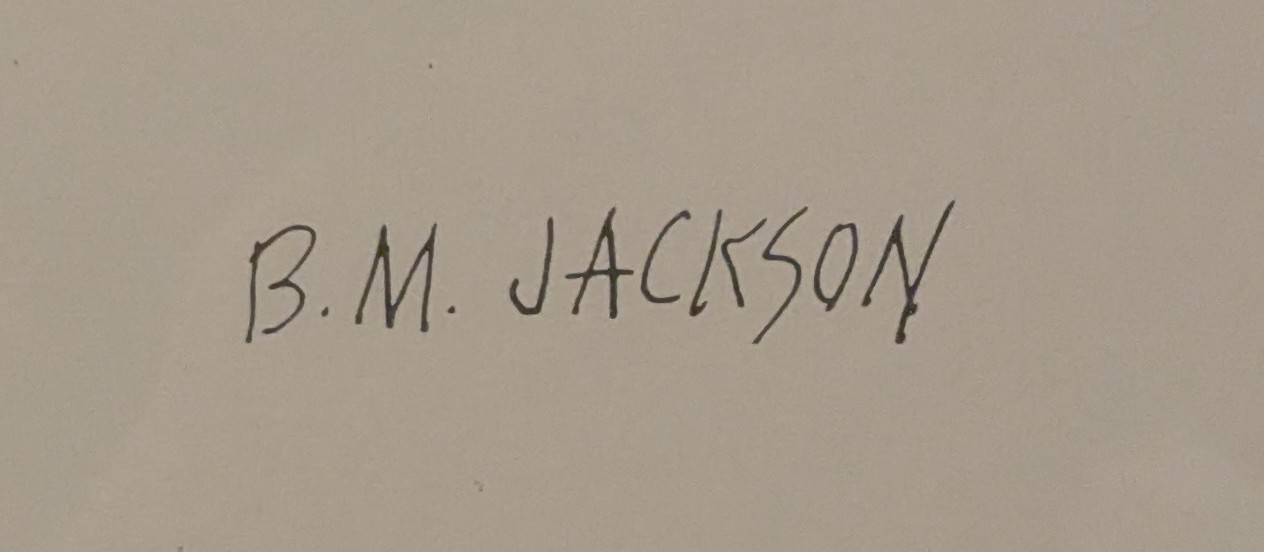 B.M. JACKSON